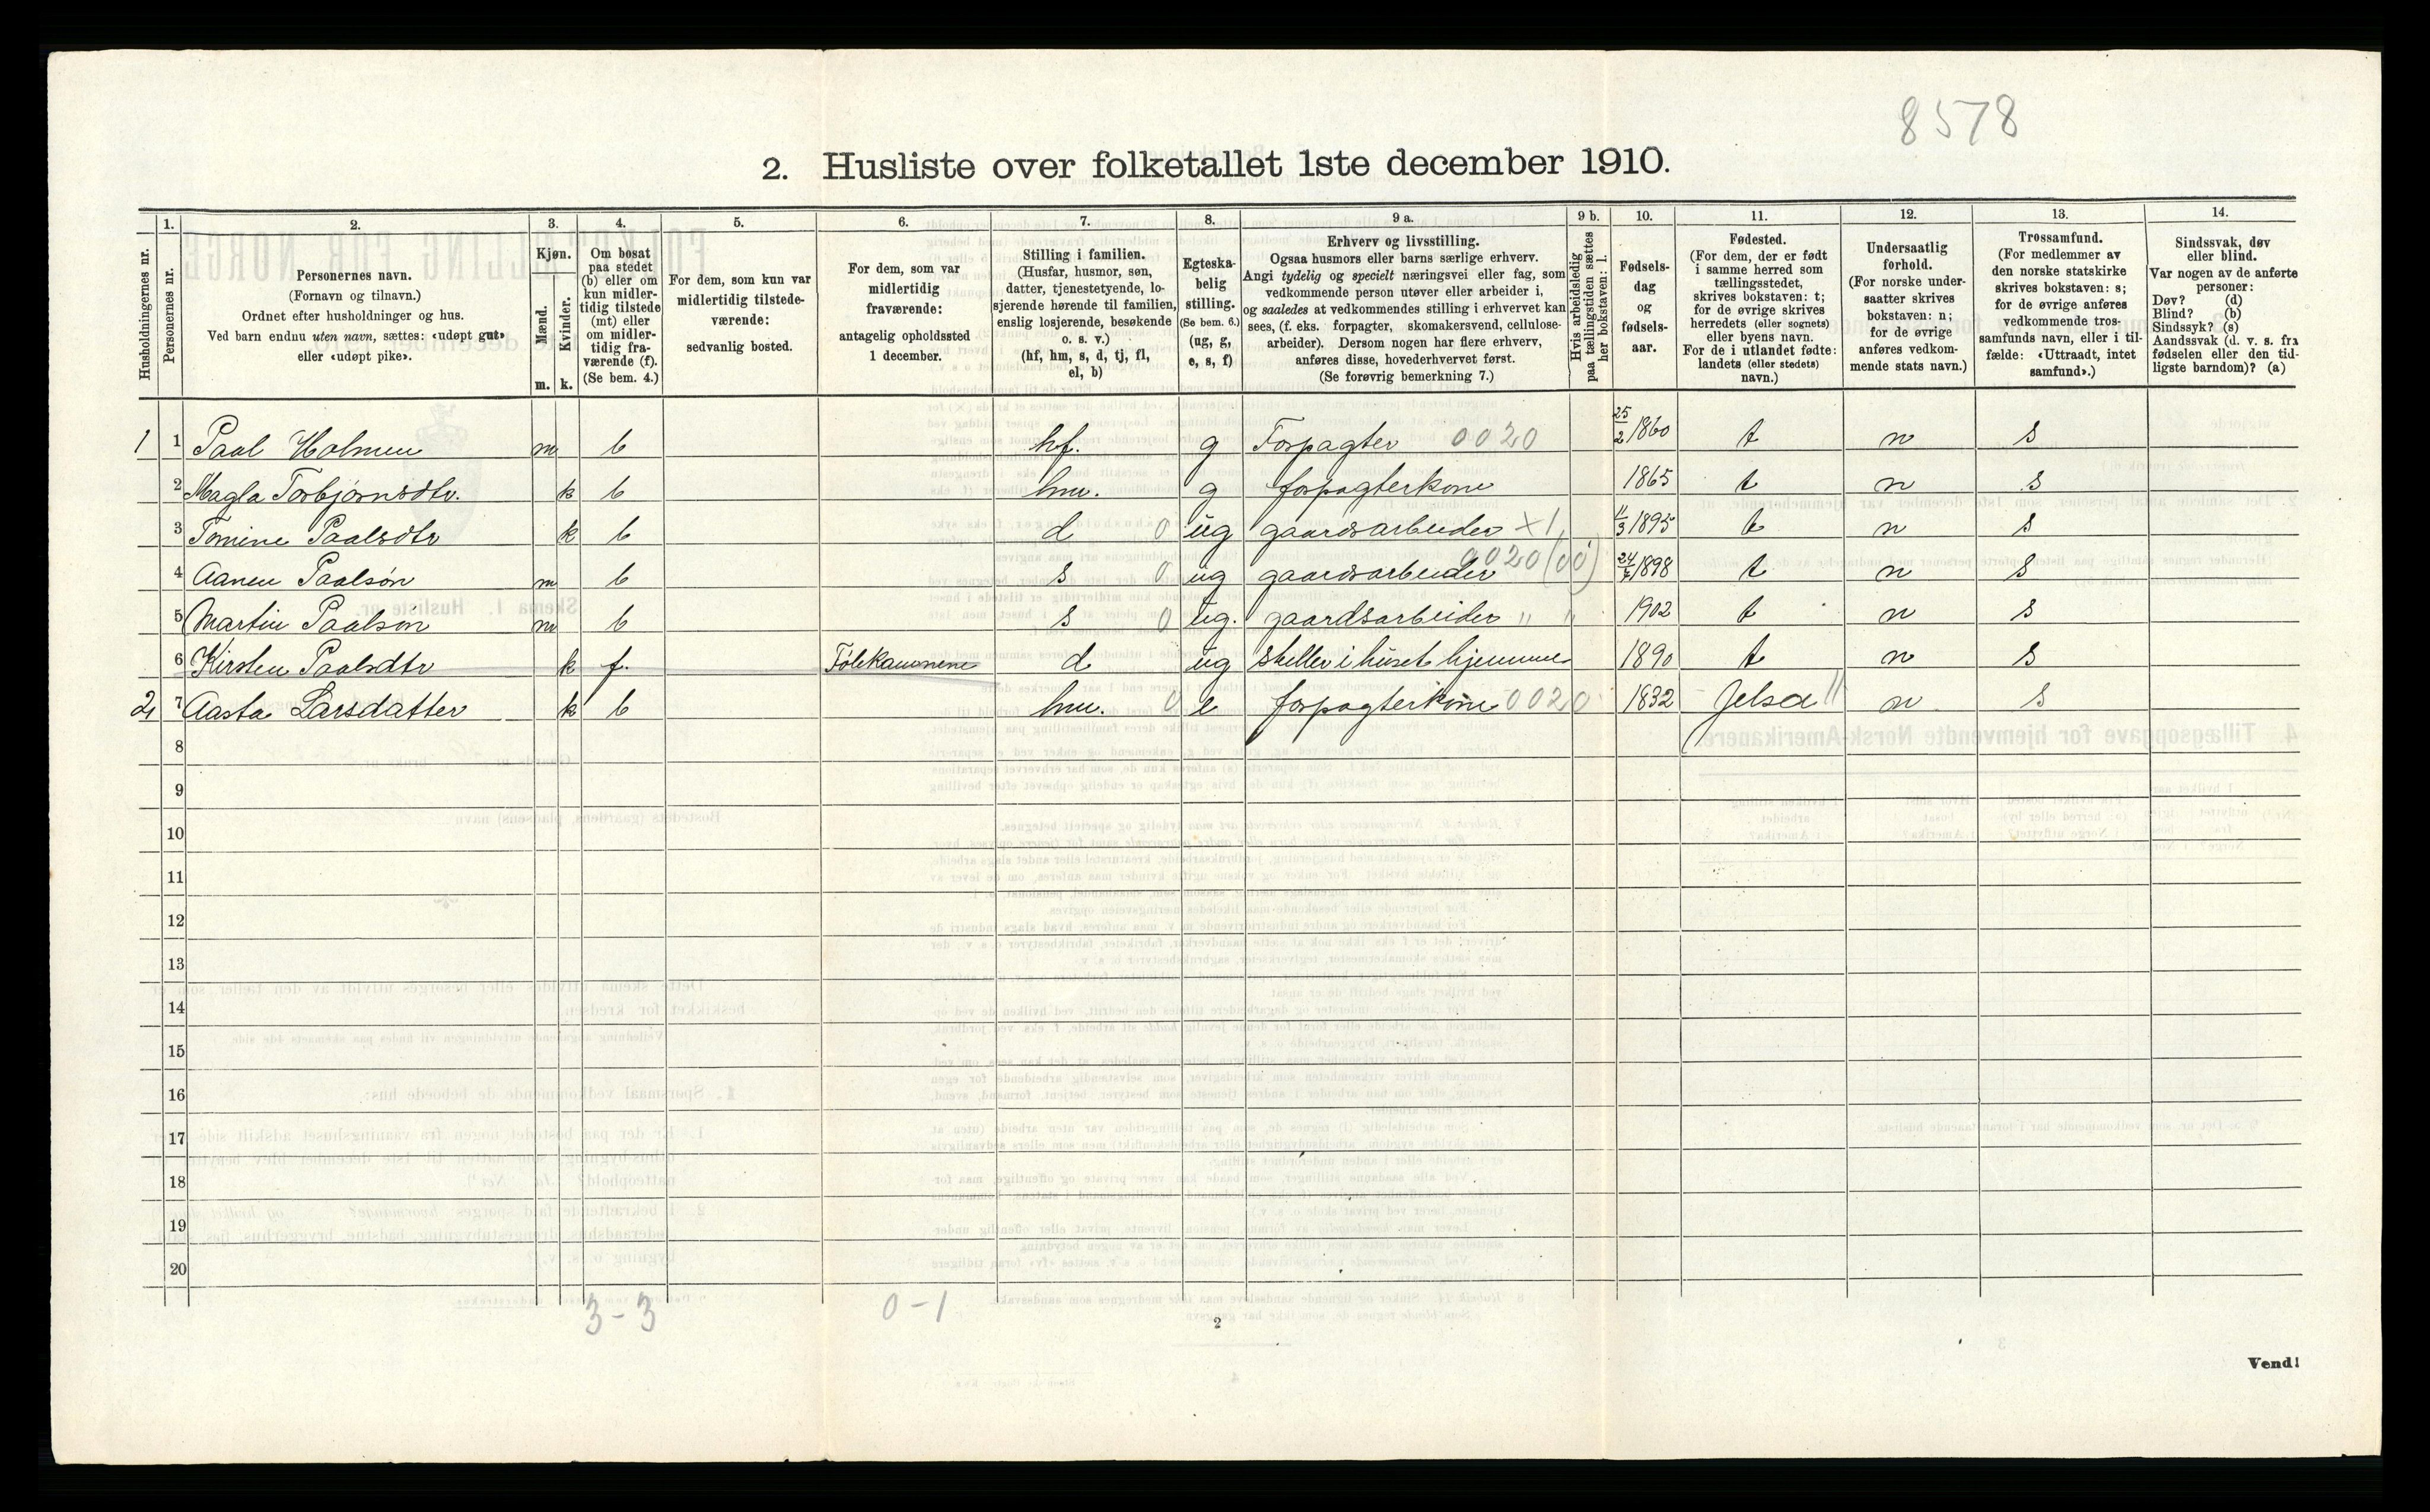 8578
2. Husliste over folketallet 1ste december 1910.
Husholdningernes nr.
1.
Personernes nr.
2.
Personernes navn.
(Fornavn og tilnavn.)
Ordnet efter husholdninger og hus.
Ved barn endnu uten navn, sættes: «udøpt gut»
eller «udøpt pike».
3.
Kjøn.
Mænd.
Kvinder.
m. k.
4.
Om bosat
paa stedet
(b) eller om
kun midler-
tidig tilstede
(mt) eller
om midler-
tidig fra-
værende (f).
(Se bem. 4.)
5.
For dem, som kun var
midlertidig tilstede-
værende:
sedvanlig bosted.
6.
For dem, som var
midlertidig
fraværende:
antagelig opholdssted
1 december.
7.
Stilling i familien.
(Husfar, husmor, søn,
datter, tjenestetyende, lo-
sjerende hørende til familien,
enslig losjerende, besøkende
o. s. v.)
(hf, hm, s, d, tj, fl,
el, b)
8.
Egteska-
belig
stilling.
(Se bem. 6.)
(ug, g,
e, s, f)
9 a.
Erhverv og livsstilling.
Ogsaa husmors eller barns særlige erhverv.
Angi tydelig og specielt næringsvei eller fag, som
vedkommende person utøver eller arbeider i,
og saaledes at vedkommendes stilling i erhvervet kan
sees, (f. eks. forpagter, skomakersvend, cellulose-
arbeider). Dersom nogen har flere erhverv,
anføres disse, hovederhvervet først.
(Se forøvrig bemerkning 7.)
9 b.
Hvis arbeidsledig
paa tællingstiden sættes
her bokstaven: l.
10.
Fødsels-
dag
og
fødsels-
aar.
11.
Fødested.
(For dem, der er født
i samme herred som
tællingsstedet,
skrives bokstaven: t;
for de øvrige skrives
herredets (eller sognets)
eller byens navn.
For de i utlandet fødte:
landets (eller stedets)
navn.)
12.
Undersaatlig
forhold.
(For norske under-
saatter skrives
bokstaven: n;
for de øvrige
anføres vedkom-
mende stats navn.)
13.
Trossamfund.
(For medlemmer av
den norske statskirke
skrives bokstaven: s;
for de øvrige anføres
vedkommende tros-
samfunds navn, eller i til-
fælde: «Uttraadt, intet
samfund».)
14.
Sindssvak, døv
eller blind.
Var nogen av de anførte
personer:
Døv? (d)
Blind? (b)
Sindssyk? (s)
Aandssvak (d. v. s. fra
fødselen eller den tid-
ligste barndom)? (a)
1 1 Paal Holmen m b hf. g Forpagter 0020 25/2 1860 t n s
2 Magla Torbjørnsdtr. k b hm. g forpagterkone 1865 t n s
3 Tomine Paalsdtr k b d 0 ug gaardsarbeider ×1 11/3 1895 t n s
4 Aanen Paalsøn m b s 0 ug gaardsarbeider 0020(00) 1898 t n s
5 Martin Paalsøn m b s 0 ug. gaardsarbeider " " 1902 t n s
6 Kirsten Paalsdtr k f. d ug steller i huset hjemme 1890 t n s
2 7 Aasta Larsdatter k b hm. 0 e forpagterkone 0020 1832 Jelsa n s
8
9
10
11
12
13
14
15
16
17
18
19
20
3-3 0-1
2
Vend!